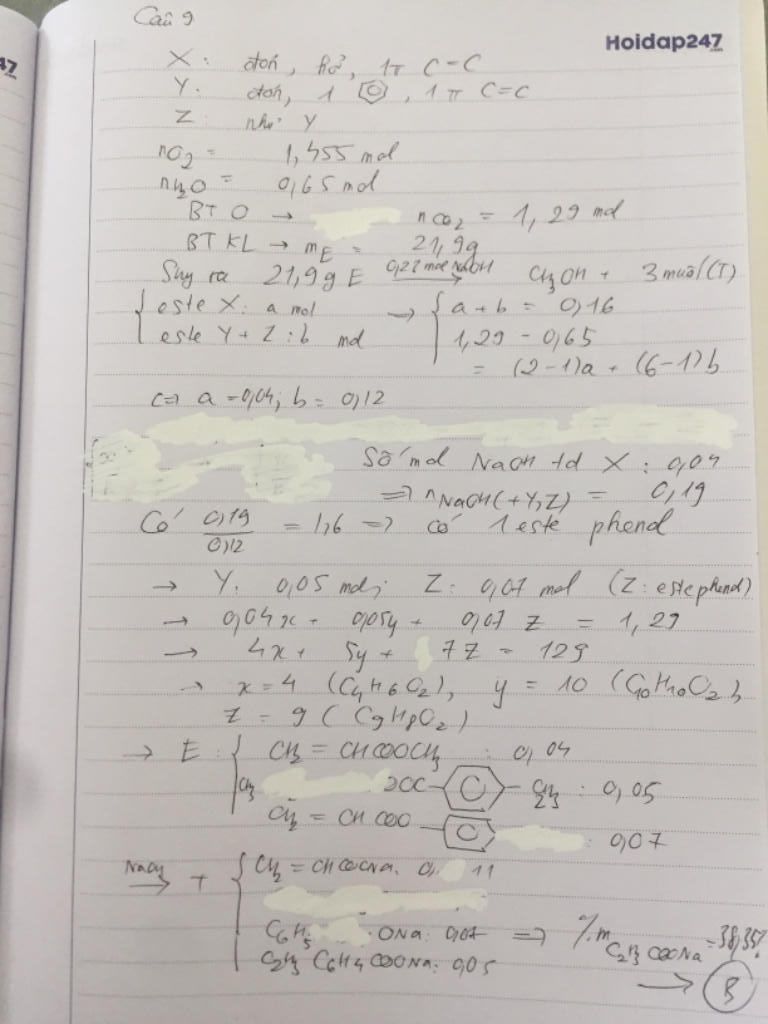 Câu 9
Hoidap247
.com
47
.com
X: đơn, hở, 1π C=C
Y: đơn, 1 ⌬, 1π C=C
Z như Y
nO2 = 1,455 mol
nH2O = 0,65 mol
BT O → nCO2 = 1,29 mol
BT KL → mE = 21,9g
Suy ra 21,9g E 0,23 mol NaOH → CH3OH + 3 muối (T)
{ este X: a mol → { a + b = 0,16
este Y + Z: b mol 1,29 - 0,65
= (2-1)a + (6-1)b
<=> a = 0,04; b = 0,12
Số mol NaOH td X: 0,04
=> nNaOH(+Y,Z) = 0,19
Có 0,19/0,12 = 1,6 => có 1 este phenol
→ Y: 0,05 mol; Z: 0,07 mol (Z: este phenol)
→ 0,04x + 0,05y + 0,07z = 1,29
→ 4x + 5y + 7z = 129
→ x = 4 (C4H6O2), y = 10 (C10H10O2),
z = 9 (C9H8O2)
→ E { CH2 = CHCOOCH3 : 0,04
CH3 OOC-⌬-C2H3 : 0,05
CH2 = CHCOO-⌬ : 0,07
NaOH → T { CH2 = CHCOONa: 0,11
C6H5 ONa: 0,07 => %m C2H3COONa = 38,35%
C2H3C6H4COONa: 0,05
→ B